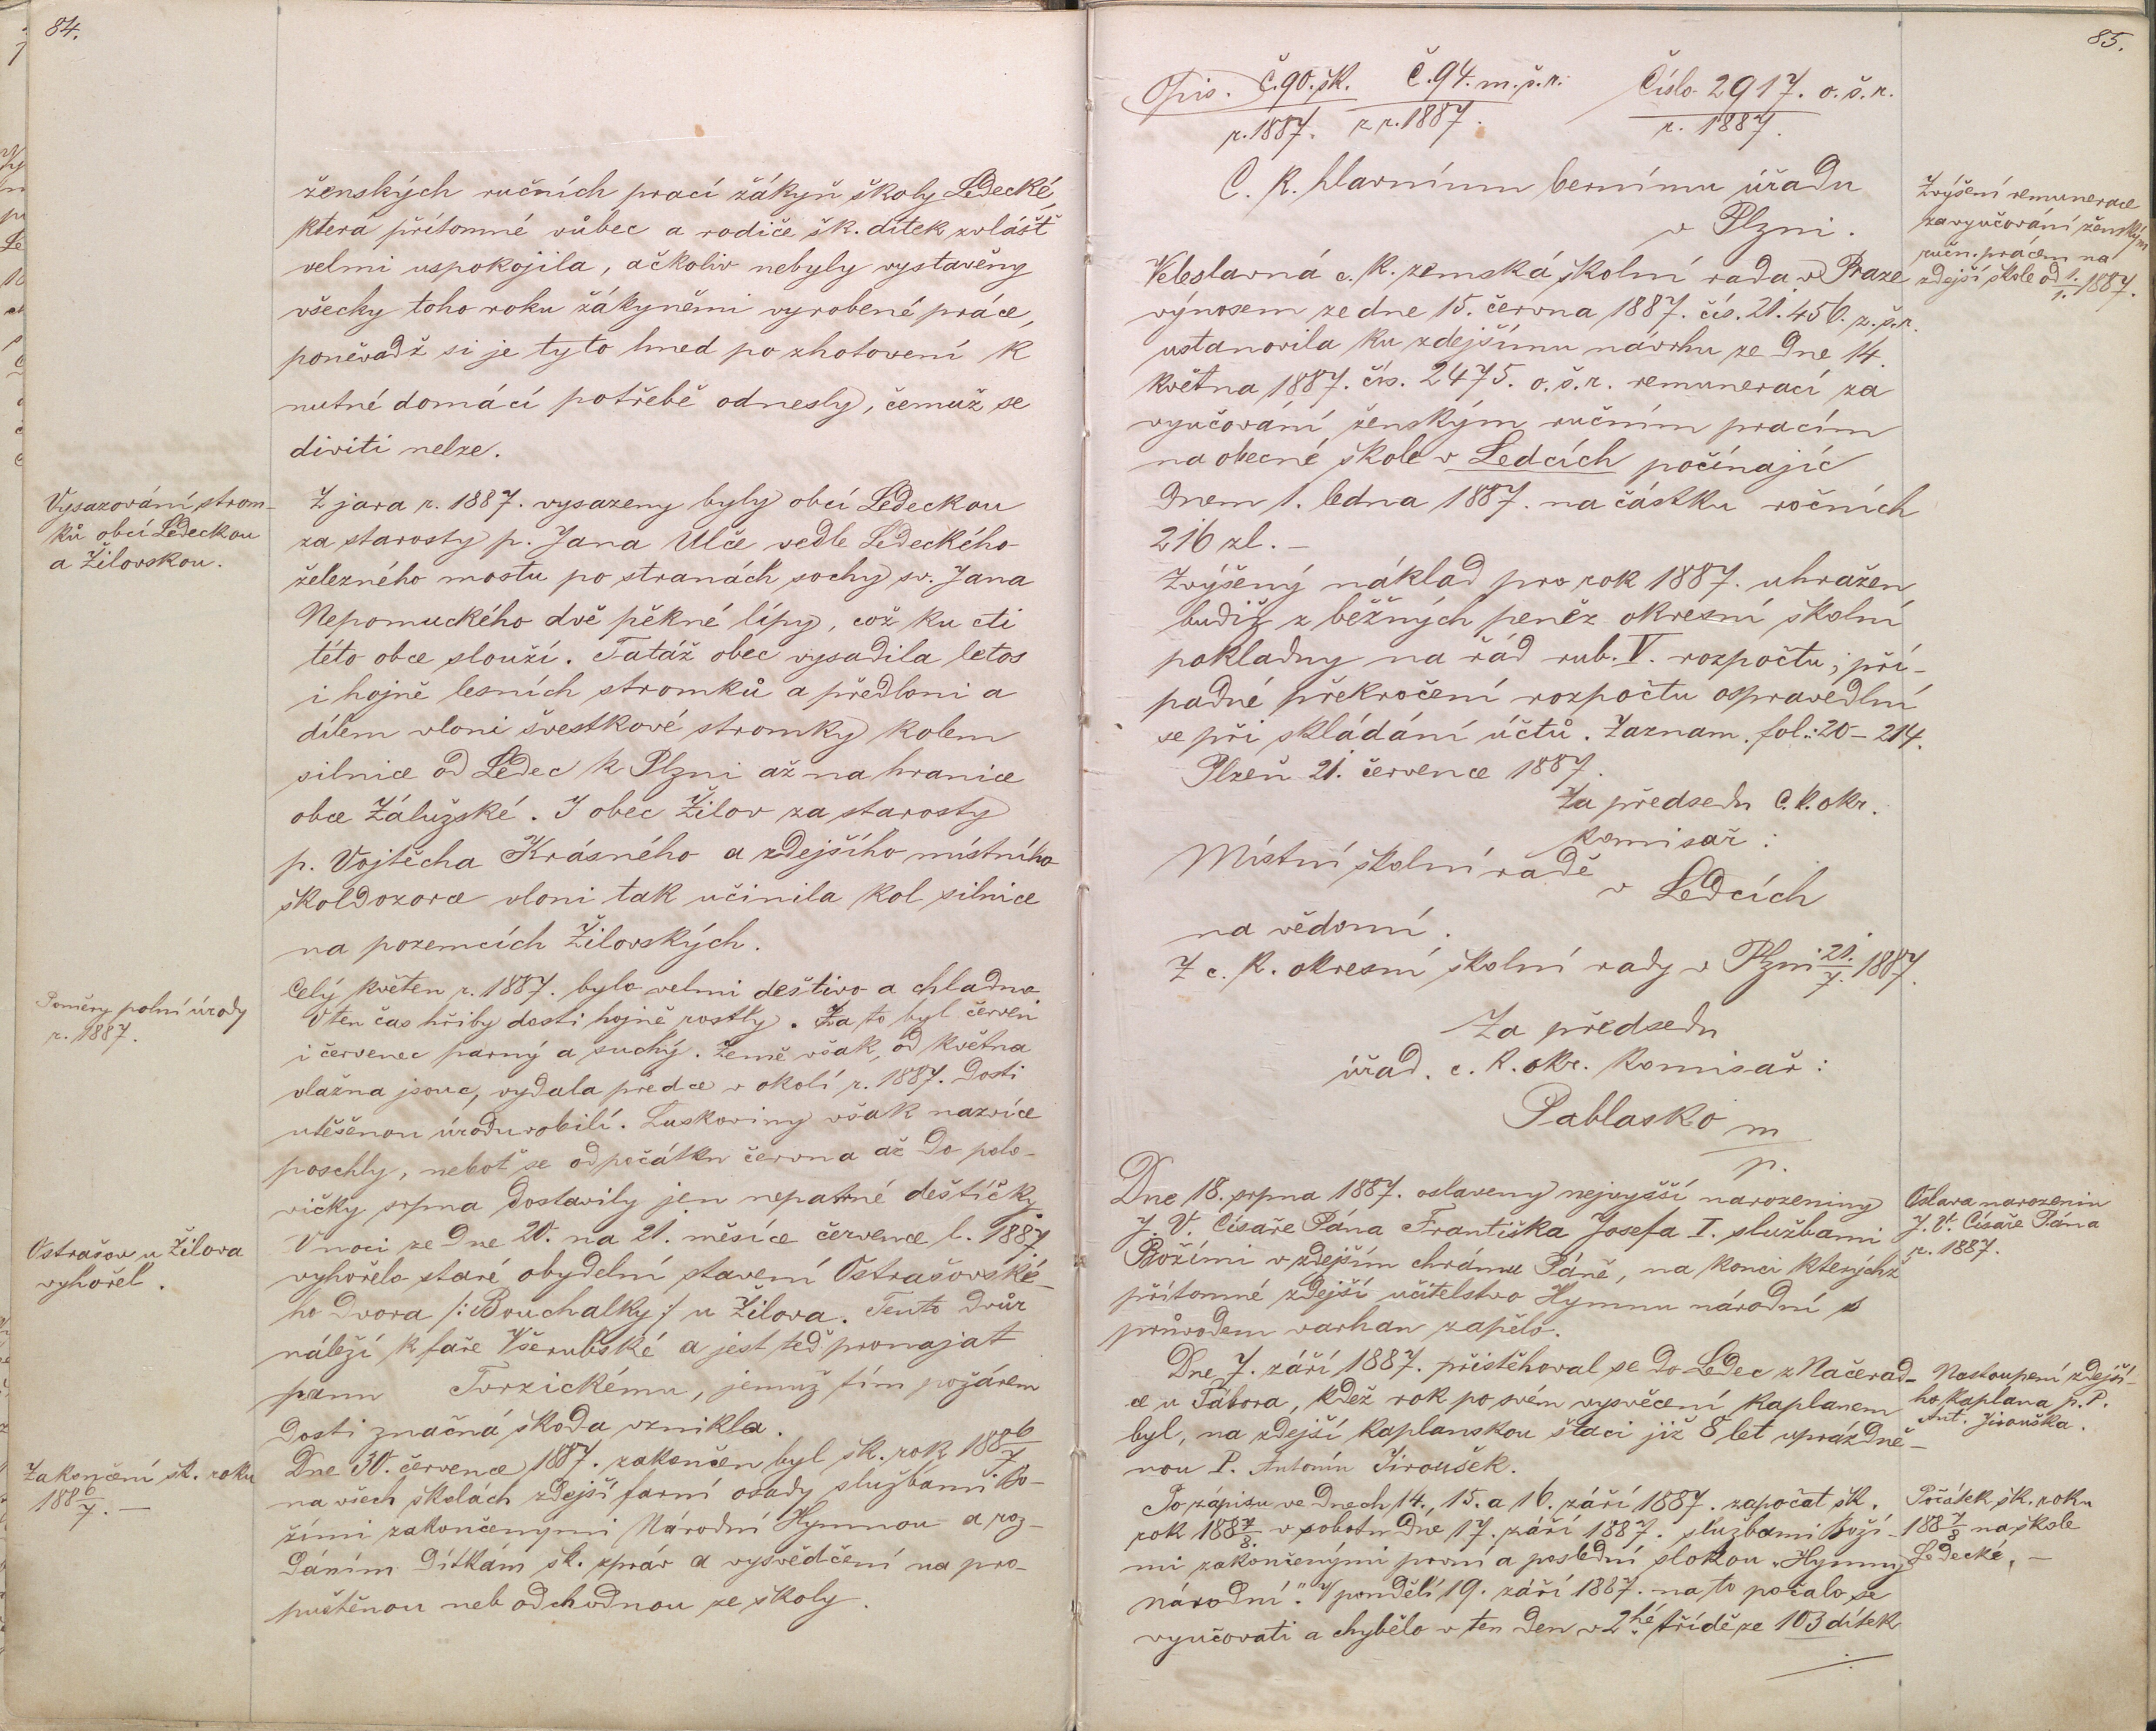 84.
ženských ručních prací žákyň školy Ledecké,
která přítomné vůbec a rodiče šk. dítek zvlášť
velmi uspokojila, ačkoliv nebyly vystavěny
všecky toho roku žákyněmi vyrobené práce,
poněvadž si je tyto hned po zhotovení k
nutné domácí potřebě odnesly, čemuž se
diviti nelze.
Vysazování strom-
ků obcí Ledeckou
a Žilovskou.
Z jara r. 1887. vysazeny byly obcí Ledeckou
za starosty p. Jana Ulče vedle Ledeckého
železného mostu po stranách sochy sv. Jana
Nepomuckého dvě pěkné lípy, což ku cti
této obce slouží. Tatáž obec vysadila letos
i hojně lesních stromků a předloni a
dílem vloni švestkové stromky kolem
silnice od Ledec k Plzni až na hranice
obce Zálužské. I obec Žilov za starosty
p. Vojtěcha Krásného a zdejšího místního
školdozorce vloni tak učinila kol silnice
na pozemcích Žilovských.
Poměry polní úrody
r. 1887.
Celý květen r. 1887. bylo velmi deštivo a chladno
V ten čas hřiby dosti hojně rostly. Za to byl červen
i červenec parný a suchý. Země však, od května
vlažna jsouc, vydala předce v okolí r. 1887. dosti
utěšenou úrodu obilí. Luskoviny však nazvíce
poschly, neboť se od počátku června až do polo-
vičky srpna dostavily jen nepatrné deštíčky.
Ostrašov u Žilova
vyhořel.
V noci ze dne 20. na 21. měsíce července l. 1887.
vyhořelo staré obydelní stavení Ostrašovské-
ho dvora /: Bouchalky :/ u Žilova. Tento dvůr
náleží k faře Všerubské a jest teď pronajat
panu Tvrzickému, jemuž tím požárem
dosti značná škoda vznikla.
Zakončení šk. roku
1886/7. —
Dne 30. července 1887. zakončen byl šk. rok 1886/7
na všech školách zdejší farní osady službami Bo-
žími zakončenými Národní Hymnou a roz-
dáním dítkám šk. zpráv a vysvědčení na pro-
puštěnou neb odchodnou ze školy.
85.
Opis. Č. 90. šk. r. 1887. Č. 94. m. š. r. z r. 1887. Číslo 2917. o. š. r. r. 1887.
C. k. hlavnímu bernímu úřadu
v Plzni.
Zvýšení remunerace
za vyučování ženským
ručn. pracem na
zdejší škole od 1./1. 1887.
Veleslavná c. k. zemská školní rada v Praze
výnosem ze dne 15. června 1887. čís. 21.456. z. š. r.
ustanovila ku zdejšímu návrhu ze dne 14.
května 1887. čís. 2475. o. š. r. remuneraci za
vyučování ženským ručním pracím
na obecné škole v Ledcích počínajíc
dnem 1. ledna 1887. na částku ročních
216 zl. –
Zvýšený náklad pro rok 1887. uhražen
budiž z běžných peněz okresní školní
pokladny na řád rub. V. rozpočtu; pří-
padné překročení rozpočtu ospravedlní
se při skládání účtů. Zaznam. fol.: 20 – 214.
Plzeň 21. července 1887.
Za předsedu c. k. okr.
komisař:
Místní školní radě
v Ledcích
na vědomí.
Z c. k. okresní školní rady v Plzni 21./7. 1887.
Za předsedu
úřad. c. k. okr. komisař:
Pablasko m
p.
Dne 18. srpna 1887. oslaveny nejvyšší narozeniny
J. V. Císaře Pána Františka Josefa I. službami
Božími v zdejším chrámu Páně, na konci kterýchž
přítomné zdejší učitelstvo Hymnu národní s
průvodem varhan zapělo.
Oslava narozenin
J. V. Císaře Pána
r. 1887.
Dne 7. září 1887. přistěhoval se do Ledec z Načerad-
ce u Tábora, kdež rok po svém vysvěcení kaplanem
byl, na zdejší kaplanskou štaci již 8 let uprázdně-
nou P. Antonín Jiroušek.
Nastoupení zdejší-
ho kaplana p. P.
Ant. Jirouška.
Po zápisu ve dnech 14., 15. a 16. září 1887. započat šk.
rok 1887/8. v sobotu dne 17. září 1887. službami Boží-
mi zakončenými první a poslední slokou „Hymny
národní." V pondělí 19. září 1887. na to počalo se
vyučovati a chybělo v ten den v 2hé třídě ze 103 dítek
Počátek šk. roku
1887/8 na škole
Ledecké. —